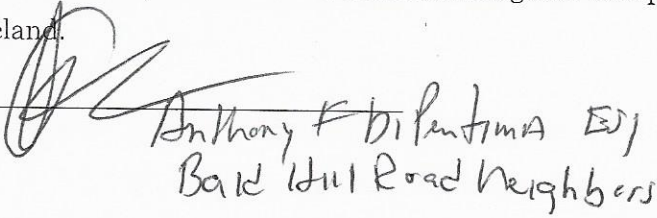 eland.
Anthony F DiPentima Esq
Bald Hill Road Neighbors